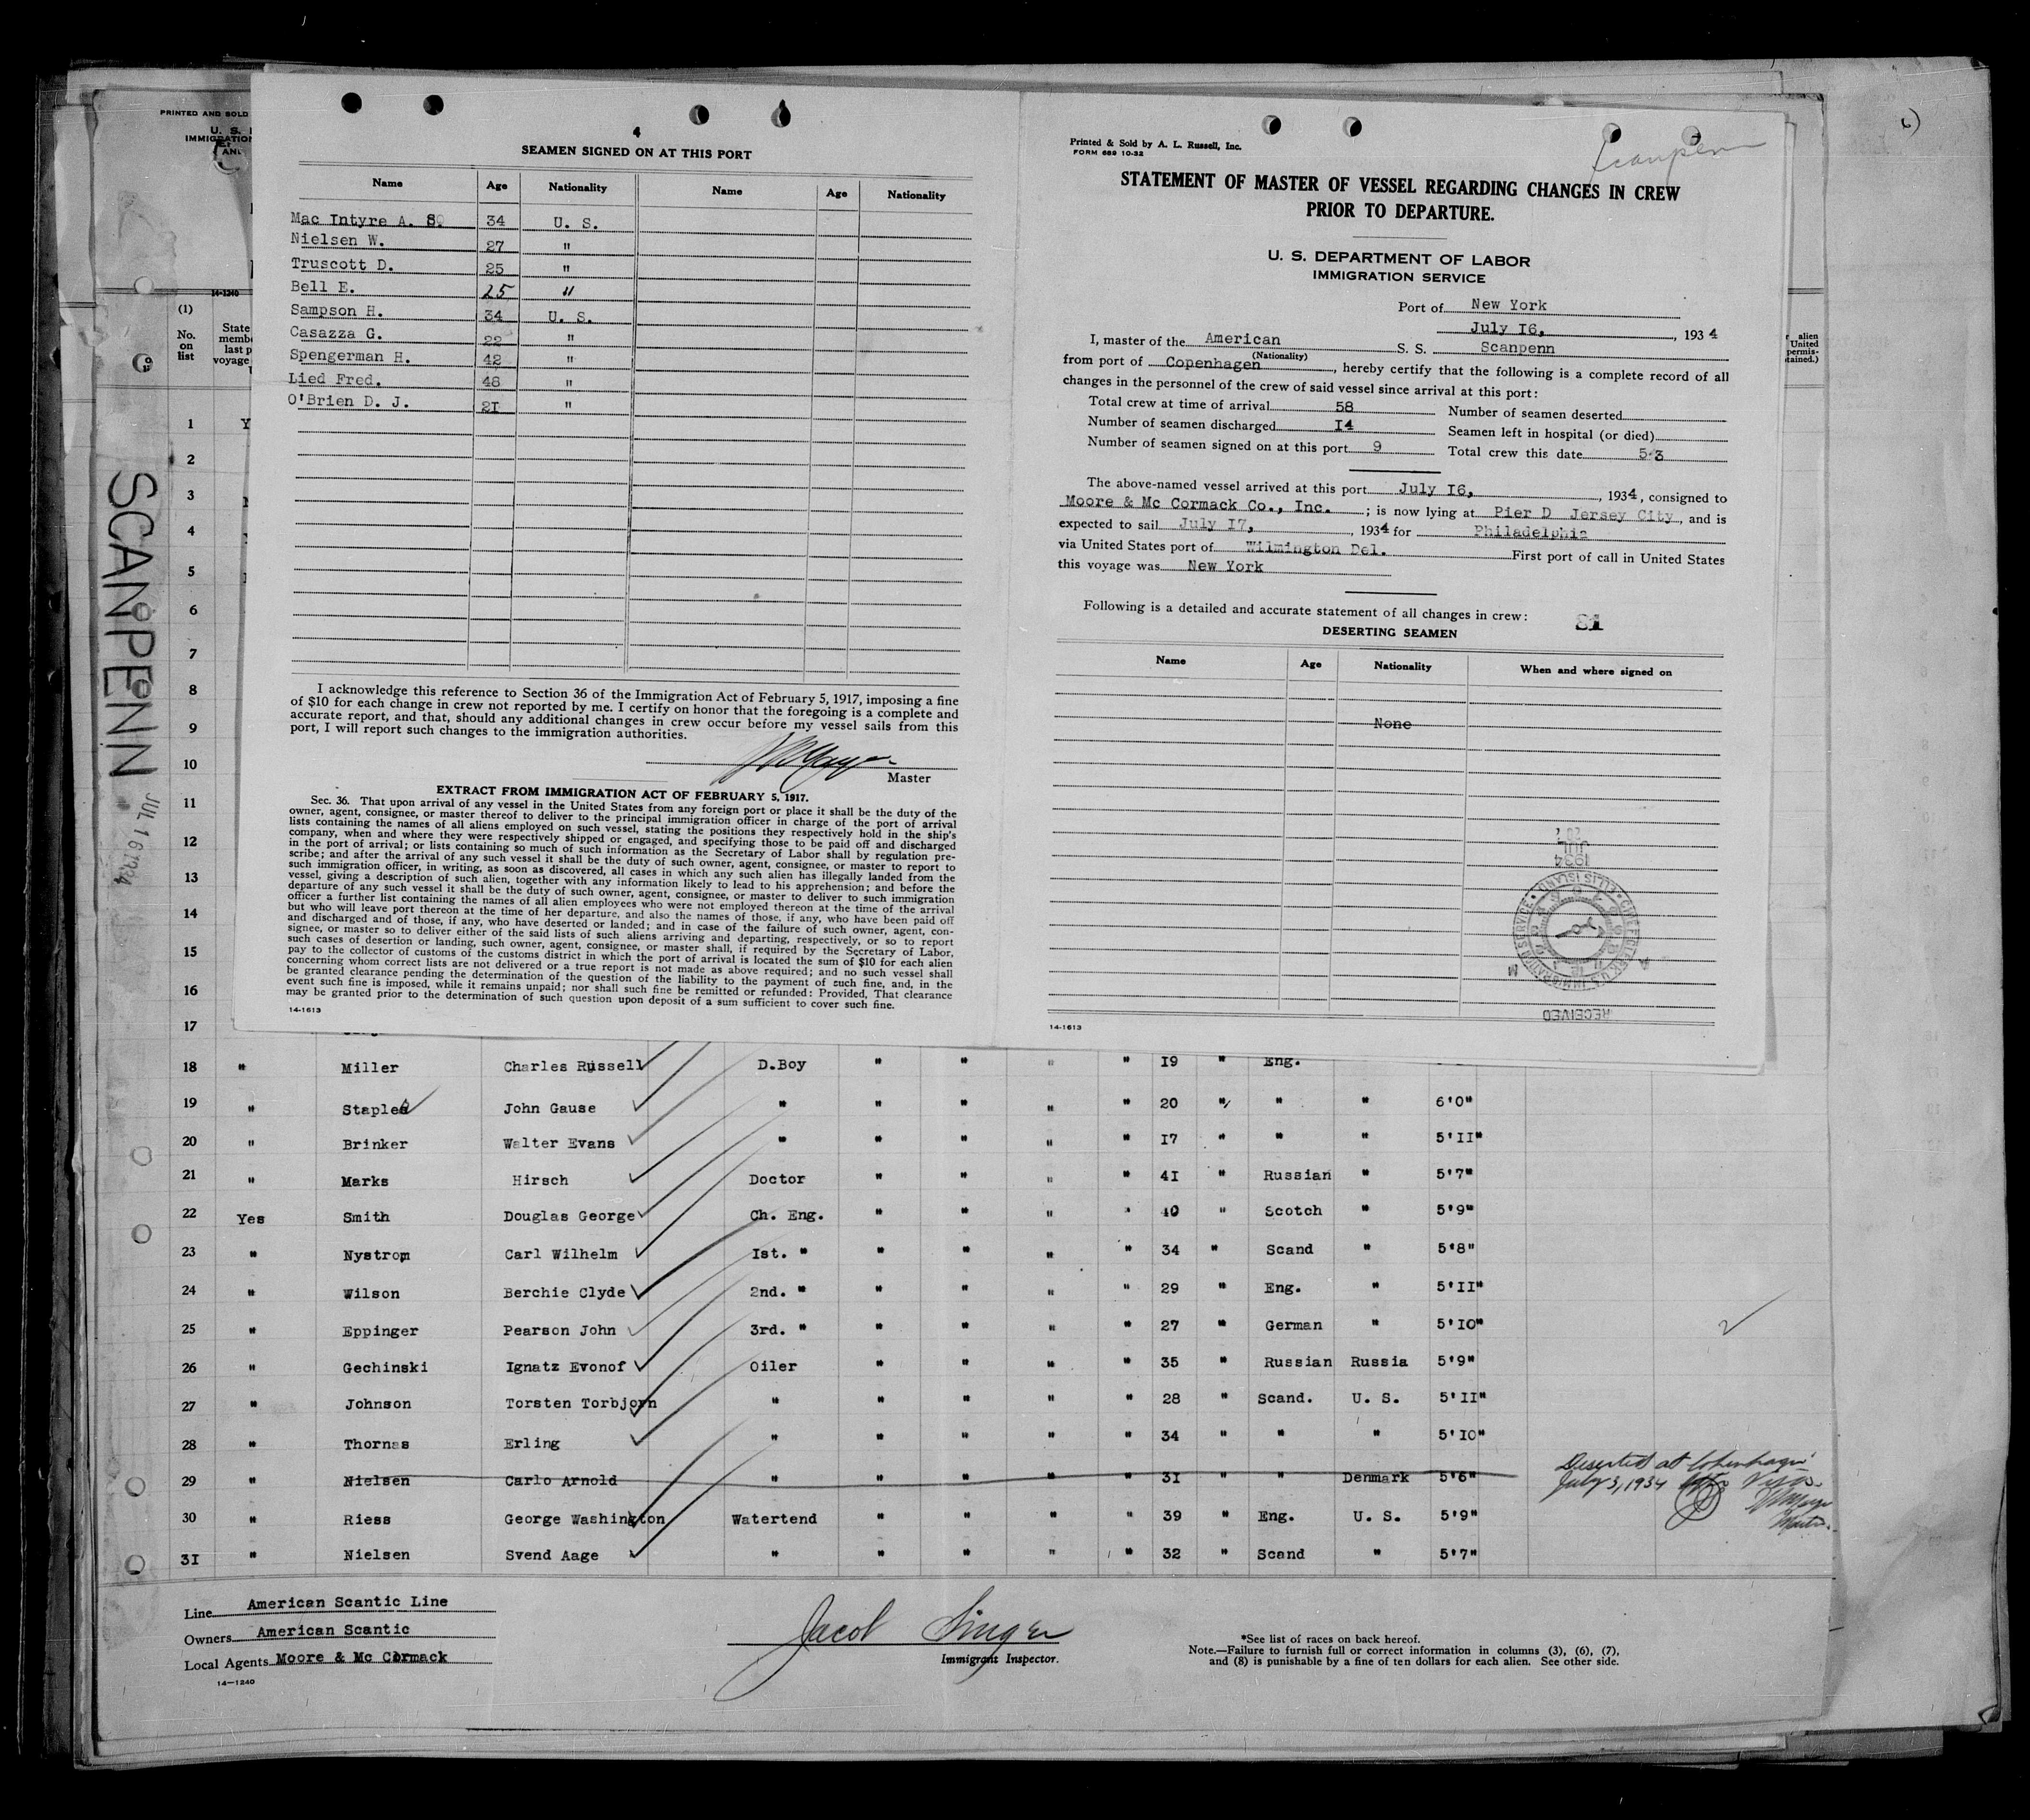 PRINTED AND SOLD
U. S.
IMMIGRATION
AND
14-1240
(1)
No.
on
list
State
memb
last p
voyage
1
2
3
4
5
6
7
8
9
10
11
12
13
14
15
16
17
SCANPENN
JUL 16 1934
4
SEAMEN SIGNED ON AT THIS PORT
Name Age Nationality Name Age Nationality
Mac Intyre A. S. 34 U. S.
Nielsen W. 27 "
Truscott D. 25 "
Bell E. 25 "
Sampson H. 34 U. S.
Casazza G. 22 "
Spengerman H. 42 "
Lied Fred. 48 "
O'Brien D. J. 2I "
I acknowledge this reference to Section 36 of the Immigration Act of February 5, 1917, imposing a fine
of $10 for each change in crew not reported by me. I certify on honor that the foregoing is a complete and
accurate report, and that, should any additional changes in crew occur before my vessel sails from this
port, I will report such changes to the immigration authorities.
Master
EXTRACT FROM IMMIGRATION ACT OF FEBRUARY 5, 1917.
Sec. 36. That upon arrival of any vessel in the United States from any foreign port or place it shall be the duty of the
owner, agent, consignee, or master thereof to deliver to the principal immigration officer in charge of the port of arrival
lists containing the names of all aliens employed on such vessel, stating the positions they respectively hold in the ship's
company, when and where they were respectively shipped or engaged, and specifying those to be paid off and discharged
in the port of arrival; or lists containing so much of such information as the Secretary of Labor shall by regulation pre-
scribe; and after the arrival of any such vessel it shall be the duty of such owner, agent, consignee, or master to report to
such immigration officer, in writing, as soon as discovered, all cases in which any such alien has illegally landed from the
vessel, giving a description of such alien, together with any information likely to lead to his apprehension; and before the
departure of any such vessel it shall be the duty of such owner, agent, consignee, or master to deliver to such immigration
officer a further list containing the names of all alien employees who were not employed thereon at the time of the arrival
but who will leave port thereon at the time of her departure, and also the names of those, if any, who have been paid off
and discharged and of those, if any, who have deserted or landed; and in case of the failure of such owner, agent, con-
signee, or master so to deliver either of the said lists of such aliens arriving and departing, respectively, or so to report
such cases of desertion or landing, such owner, agent, consignee, or master shall, if required by the Secretary of Labor,
pay to the collector of customs of the customs district in which the port of arrival is located the sum of $10 for each alien
concerning whom correct lists are not delivered or a true report is not made as above required; and no such vessel shall
be granted clearance pending the determination of the question of the liability to the payment of such fine, and, in the
event such fine is imposed, while it remains unpaid; nor shall such fine be remitted or refunded: Provided, That clearance
may be granted prior to the determination of such question upon deposit of a sum sufficient to cover such fine.
14-1613
Printed & Sold by A. L. Russell, Inc.
FORM 689 10-32
Scanpenn
STATEMENT OF MASTER OF VESSEL REGARDING CHANGES IN CREW
PRIOR TO DEPARTURE.
U. S. DEPARTMENT OF LABOR
IMMIGRATION SERVICE
Port of New York
July I6, 1934
I, master of the American S. S. Scanpenn
(Nationality)
from port of Copenhagen, hereby certify that the following is a complete record of all
changes in the personnel of the crew of said vessel since arrival at this port:
Total crew at time of arrival 58 Number of seamen deserted
Number of seamen discharged I4 Seamen left in hospital (or died)
Number of seamen signed on at this port 9 Total crew this date 53
The above-named vessel arrived at this port July I6, 1934, consigned to
Moore & Mc Cormack Co., Inc. ; is now lying at Pier D Jersey City, and is
expected to sail July I7, 1934 for Philadelphia
via United States port of Wilmington Del. First port of call in United States
this voyage was New York
Following is a detailed and accurate statement of all changes in crew: 81
DESERTING SEAMEN
Name Age Nationality When and where signed on
None
1934
JUL
ELLIS ISLAND
U.S. IMMIGRATION SERVICE
A M
RECEIVED
14-1613
r alien
United
permis-
tained.)
18 " Miller Charles Russell D.Boy " " " " I9 " Eng.
19 " Staples John Gause " " " " " 20 " " " 6'0"
20 " Brinker Walter Evans " " " " " I7 " " " 5'II"
21 " Marks Hirsch Doctor " " " " 4I " Russian " 5'7"
22 Yes Smith Douglas George Ch. Eng. " " " " 40 " Scotch " 5'9"
23 " Nystrom Carl Wilhelm Ist. " " " " " 34 " Scand " 5'8"
24 " Wilson Berchie Clyde 2nd. " " " " " 29 " Eng. " 5'II"
25 " Eppinger Pearson John 3rd. " " " " " 27 " German " 5'I0"
26 " Gechinski Ignatz Evonof Oiler " " " " 35 " Russian Russia 5'9"
27 " Johnson Torsten Torbjorn " " " " " 28 " Scand. U. S. 5'II"
28 " Thornas Erling " " " " " 34 " " " 5'I0"
29 " Nielsen Carlo Arnold " " " " " 3I " " Denmark 5'6" Deserted at Copenhagen
July 3, 1934
Master
30 " Riess George Washington Watertend " " " " 39 " Eng. U. S. 5'9"
3I " Nielsen Svend Aage " " " " " 32 " Scand " 5'7"
Line American Scantic Line
Owners American Scantic
Local Agents Moore & Mc Cormack
14—1240
Jacob Singer
Immigrant Inspector.
*See list of races on back hereof.
Note.—Failure to furnish full or correct information in columns (3), (6), (7),
and (8) is punishable by a fine of ten dollars for each alien. See other side.